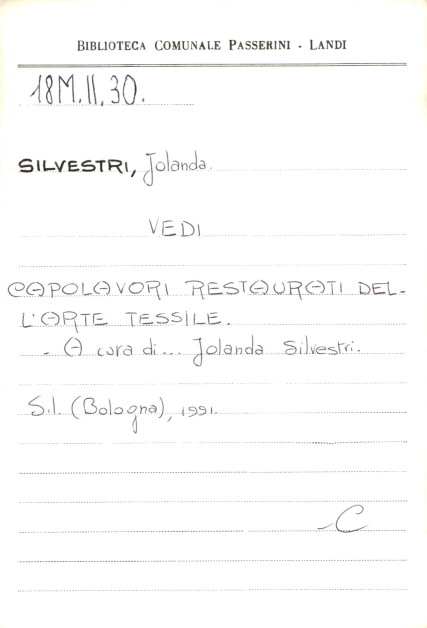 BIBLIOTECA COMUNALE PASSERINI - LANDI
18M.II.30.
SILVESTRI, Jolanda.
VEDI
CAPOLAVORI RESTAURATI DEL-
L'ARTE TESSILE.
- A cura di... Jolanda Silvestri.
S.l. (Bologna), 1991.
-C